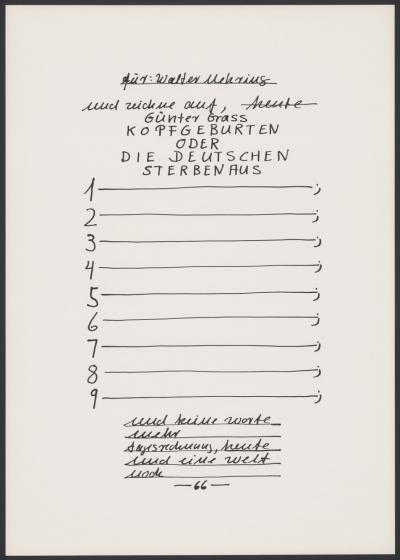 für: Walter Mehring
und zeichne auf, heute
Günter Grass
KOPFGEBURTEN
ODER
DIE DEUTSCHEN
STERBEN AUS
1 ;
2 ;
3 ;
4 ;
5 ;
6 ;
7 ;
8 ;
9 ;
und keine worte
mehr
tagesrechnung, heute
und eine welt
noch
— 66 —